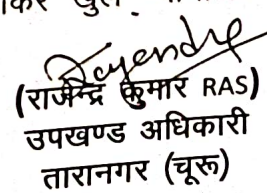 Rajendra
(राजेन्द्र कुमार RAS)
उपखण्ड अधिकारी
तारानगर (चूरू)